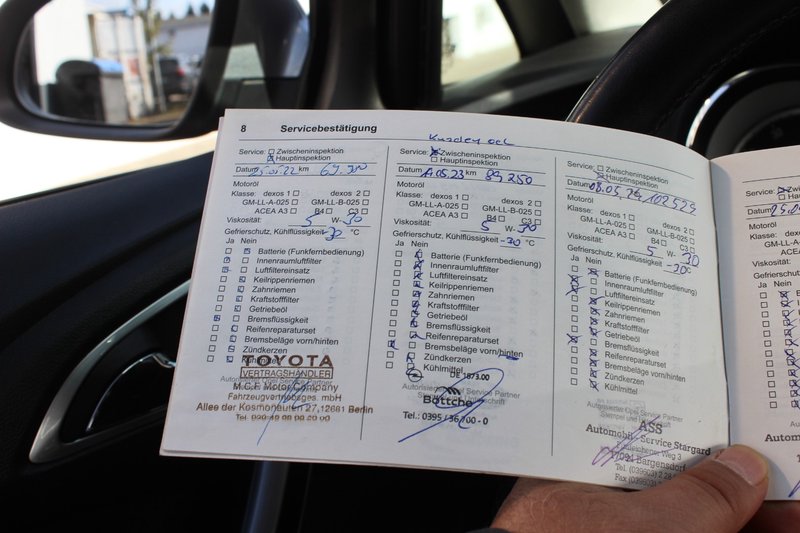 8 Servicebestätigung
Service: Zwischeninspektion
Hauptinspektion
Datum 22 km
Motoröl
Klasse: dexos 1 dexos 2
GM-LL-A-025 GM-LL-B-025
ACEA A3 B4 C3
Viskosität: 5 W-30
Gefrierschutz, Kühlflüssigkeit -30 °C
Ja Nein
Batterie (Funkfernbedienung)
Innenraumluftfilter
Luftfiltereinsatz
Keilrippenriemen
Zahnriemen
Kraftstofffilter
Getriebeöl
Bremsflüssigkeit
Reifenreparaturset
Bremsbeläge vorn/hinten
Zündkerzen
Kühlmittel
TOYOTA
VERTRAGSHÄNDLER
M.C.F. Motor Company
Fahrzeugvertriebsges. mbH
Allee der Kosmonauten 27, 12681 Berlin
Service: Zwischeninspektion
Hauptinspektion
Datum 05.23 km 89 250
Motoröl
Klasse: dexos 1 dexos 2
GM-LL-A-025 GM-LL-B-025
ACEA A3 B4 C3
Viskosität: 5 W-30
Gefrierschutz, Kühlflüssigkeit -30 °C
Ja Nein
Batterie (Funkfernbedienung)
Innenraumluftfilter
Luftfiltereinsatz
Keilrippenriemen
Zahnriemen
Kraftstofffilter
Getriebeöl
Bremsflüssigkeit
Reifenreparaturset
Bremsbeläge vorn/hinten
Zündkerzen
Kühlmittel
Autorisierter Opel Service Partner
Böttche
Tel.: 0395 / 36 700 - 0
Service: Zwischeninspektion
Hauptinspektion
Datum 08.05.24 102529
Motoröl
Klasse: dexos 1 dexos 2
GM-LL-A-025 GM-LL-B-025
ACEA A3 B4 C3
Viskosität: 5 W-30
Gefrierschutz, Kühlflüssigkeit -20 °C
Ja Nein
Batterie (Funkfernbedienung)
Innenraumluftfilter
Luftfiltereinsatz
Keilrippenriemen
Zahnriemen
Kraftstofffilter
Getriebeöl
Bremsflüssigkeit
Reifenreparaturset
Bremsbeläge vorn/hinten
Zündkerzen
Kühlmittel
Autorisierter Opel Service Partner
Stempel und Unterschrift
ASS
Automobil-Service Stargard
Weg 3
17094 Bargensdorf
Tel. (039603)
Fax (039603)
Service:
Datum
Motoröl
Klasse: dexos
GM-LL-A-025
ACEA A3
Viskosität:
Gefrierschutz,
Ja Nein
Automobil